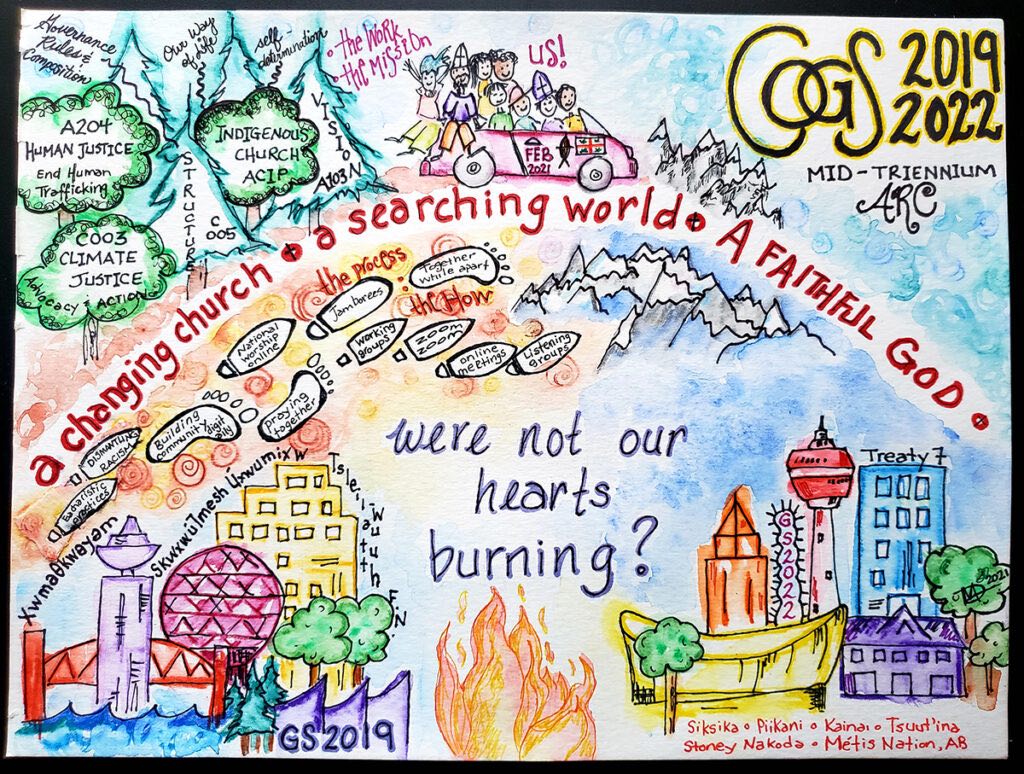 Governance
Rules &
Composition
Our Way
of Life
self-
determination
• the Work
• the Mission
US!
COGS 2019
2022
MID-TRIENNIUM
ARC
A204
HUMAN JUSTICE
End Human
Trafficking
INDIGENOUS
CHURCH
ACIP
VISION
A103
STRUCTURES
C
005
C003
CLIMATE
JUSTICE
ADVOCACY & ACTION
FEB
2021
a changing church • a searching world • A FAITHFUL GOD •
the process
the flow
Together
while apart
Jamborees
National
worship
online
working
groups
ZOOM
ZOOM
online
meetings
Listening
groups
praying
together
Building
community digit
ally
DISMANTLING
RACISM
Eucharistic
practices
were not our
hearts
burning?
Xwməθkwəyəm
Skwxwúlmesh Úxwumixw
Tsleil Waututh F.N.
GS2019
GS2022
Treaty 7
2021
Siksika • Piikani • Kainai • Tsuut'ina
Stoney Nakoda • Métis Nation, AB